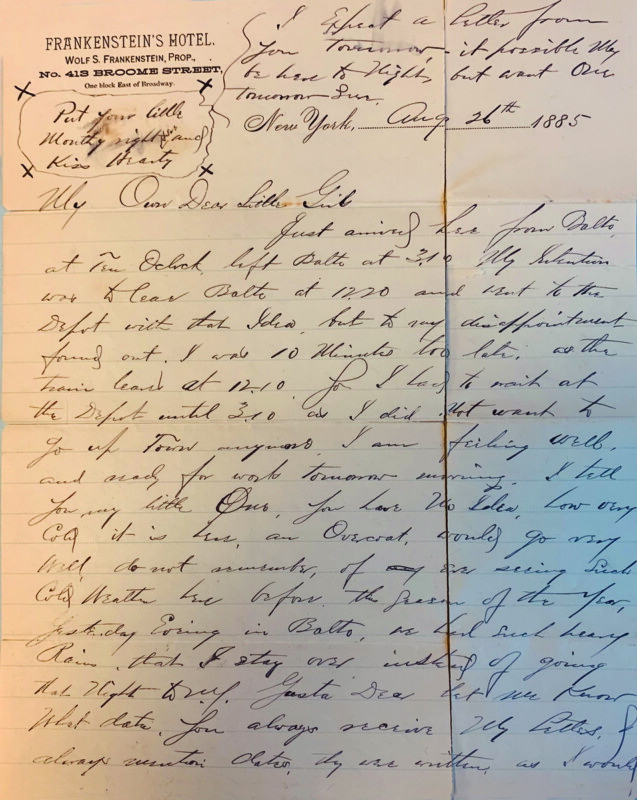 FRANKENSTEIN'S HOTEL.
WOLF S. FRANKENSTEIN, PROP.,
No. 413 BROOME STREET,
One block East of Broadway.
Put your little
Mouthy right and
Kiss Hearty
I Expect a letter from
You Tomorrow, it possible May
be here to Night, but want One
tomorrow Sure.
New York, Aug 26th 1885
My Own Dear Little Girl
Just arrived here from Balto,
at Ten Oclock, left Balto at 3.10 My Intention
was to leave Balto at 12.20 and went to the
Depot with that Idea, but to my disappointment
found out, I was 10 Minutes too late, as the
train leaves at 12.10. So I had to wait at
the Depot until 3.10 as I did Not want to
go up Town anymore, I am feeling well,
and ready for work tomorrow morning. I tell
you, my little One, you have No Idea, how very
Cold it is here, an Overcoat, would go very
Well, do not remember, of ever seeing such
Cold Weather here before the Season of the Year,
Yesterday Evening in Balto, we had such heavy
Rain, that I stay over instead of going
that Night to N.Y. Gusta Dear let me Know
What date, You always receive My letters, I
always mention dates, they are written, as I would